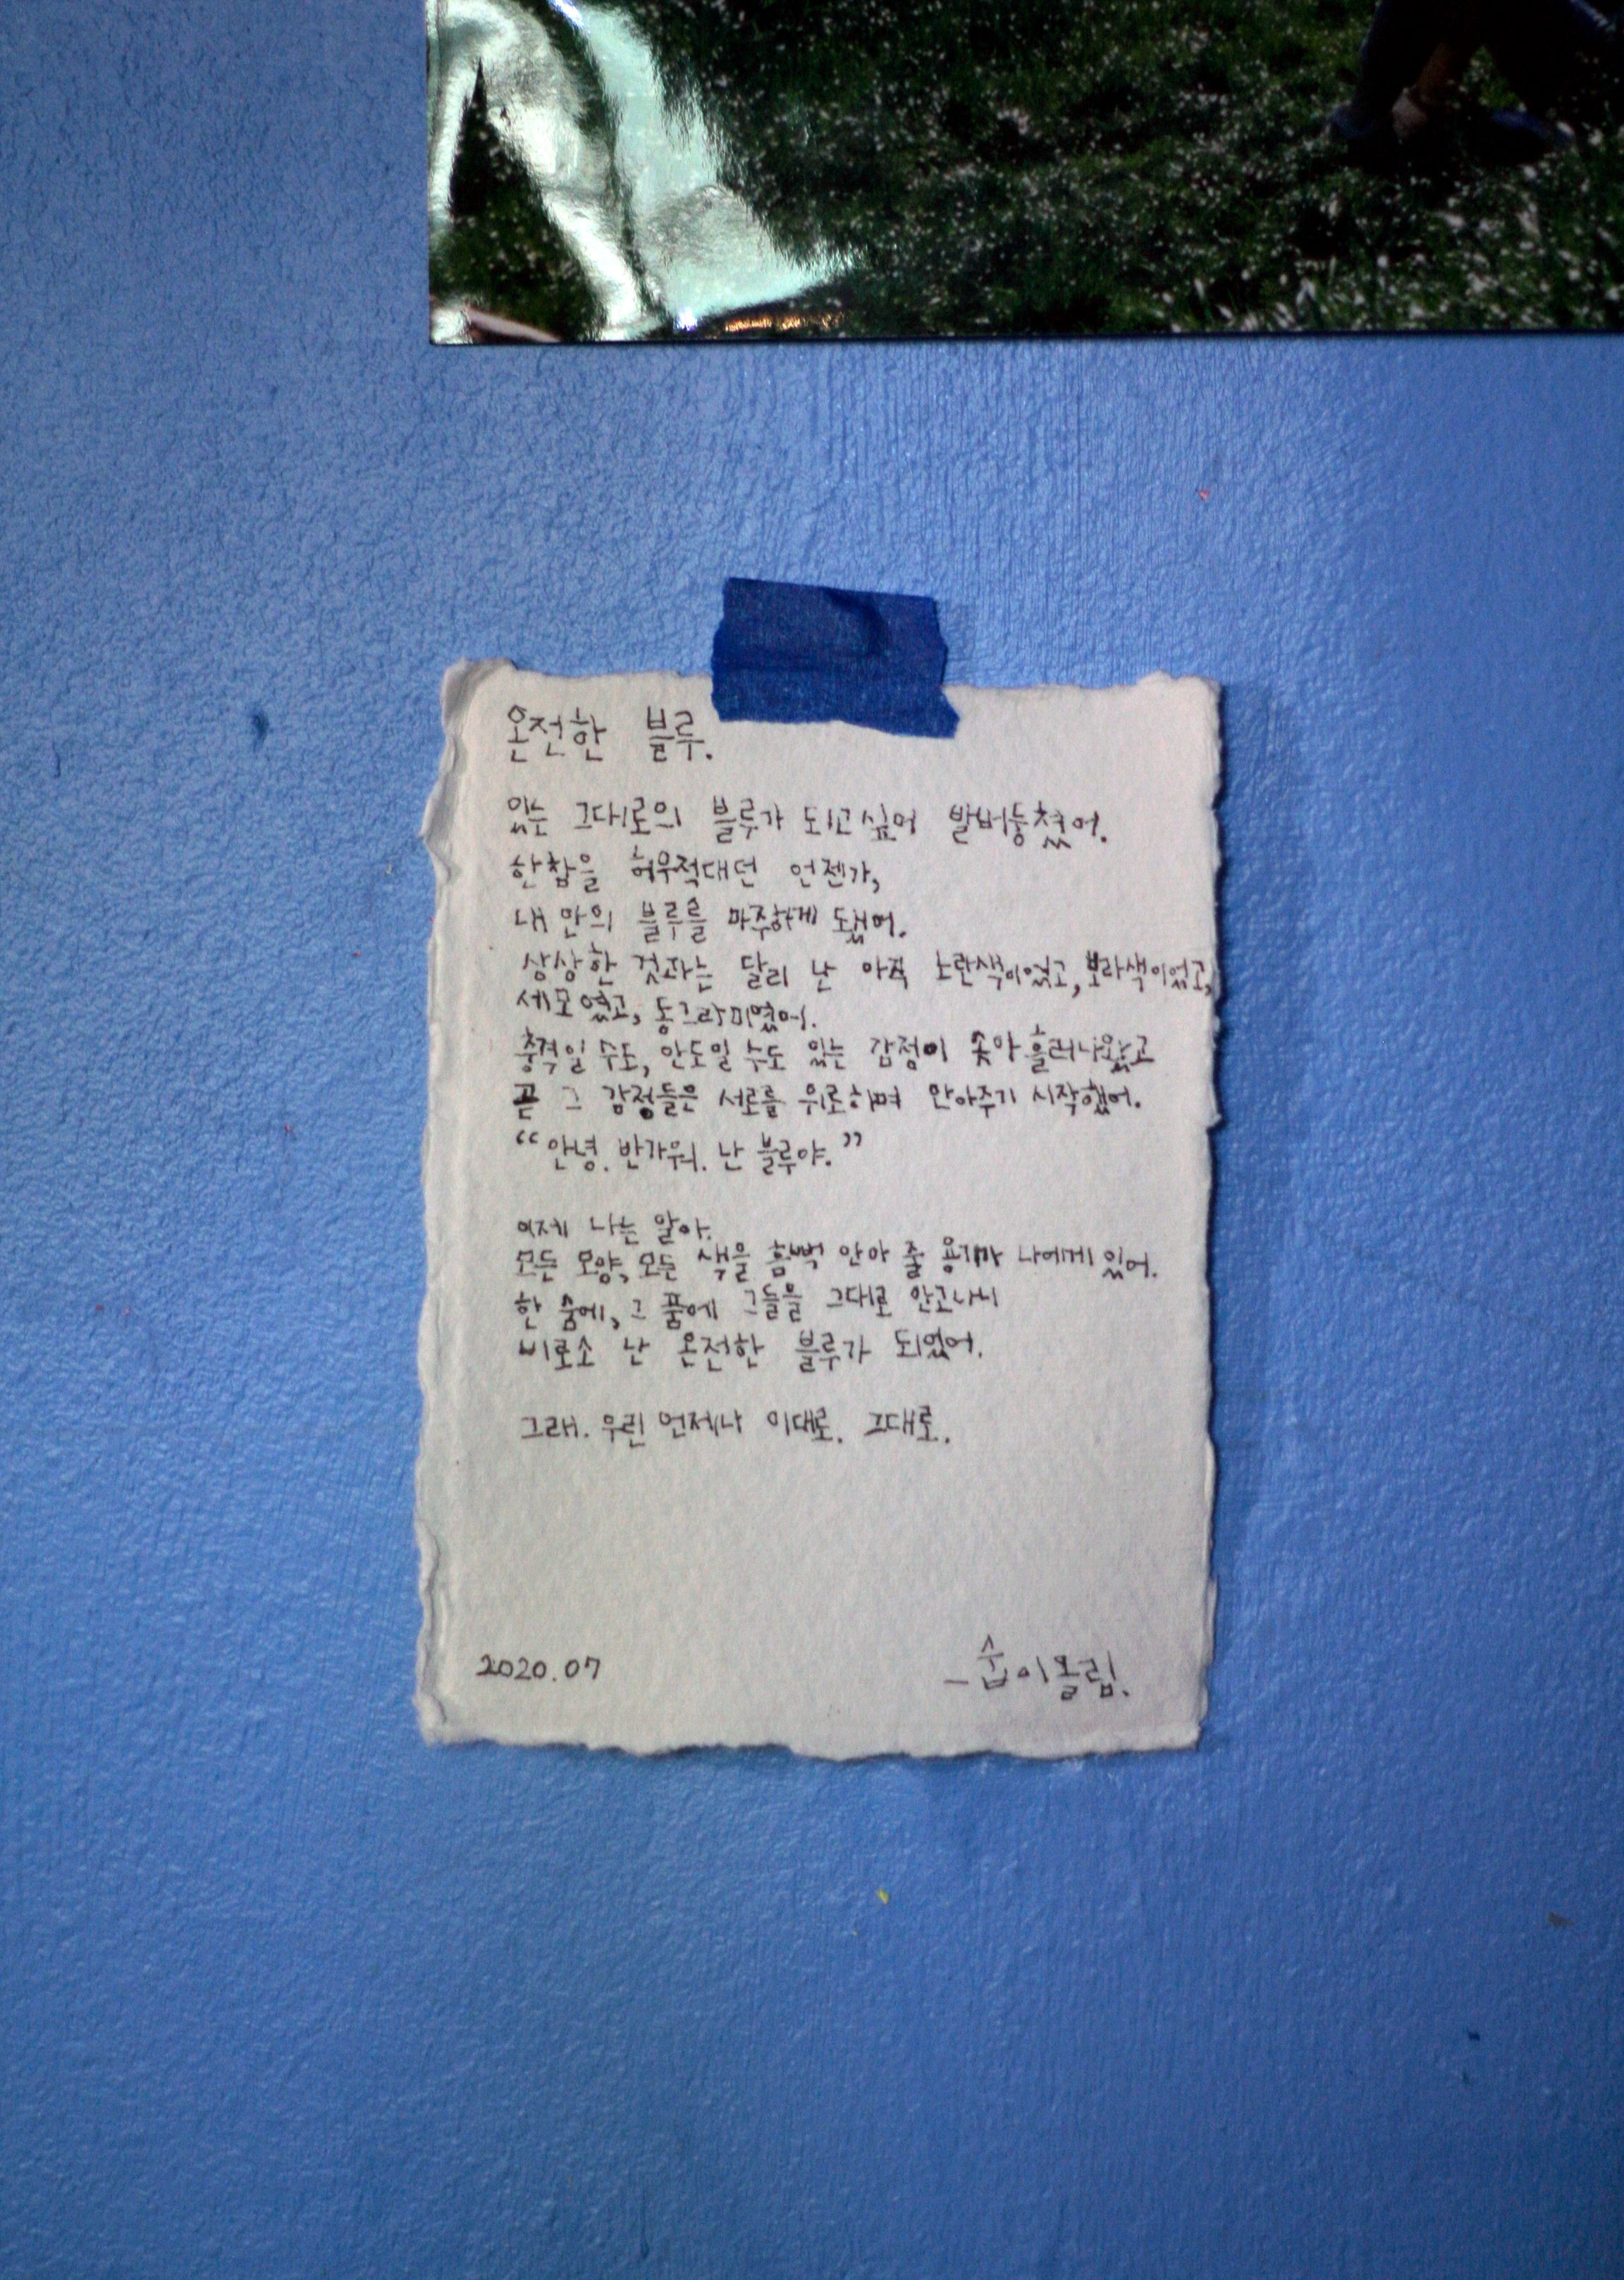 온전한 블루.
있는 그대로의 블루가 되고싶어 발버둥쳤어.
한참을 허우적대던 언젠가,
내 만의 블루를 마주하게 됐어.
상상한 것과는 달리 난 아직 노란색이었고, 보라색이었고,
세모였고, 동그라미였어.
충격일 수도, 안도일 수도 있는 감정이 솟아 흘러나왔고
곧 그 감정들은 서로를 위로하며 안아주기 시작했어.
“안녕. 반가워. 난 블루야.”
이제 나는 알아.
모든 모양, 모든 색을 흠뻑 안아 줄 용기가 나에게 있어.
한 숨에, 그 품에 그들을 그대로 안고나니
비로소 난 온전한 블루가 되었어.
그래. 우린 언제나 이대로. 그대로.
2020.07